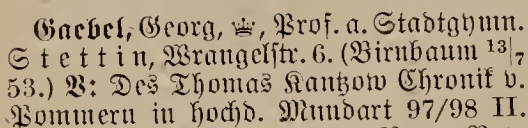 Gaebel, Georg, ♕, Prof. a. Stadtgymn.
Stettin, Wrangelstr. 6. (Birnbaum 13/7
53.) V: Des Thomas Kantzow Chronik v.
Pommern in hochd. Mundart 97/98 II.